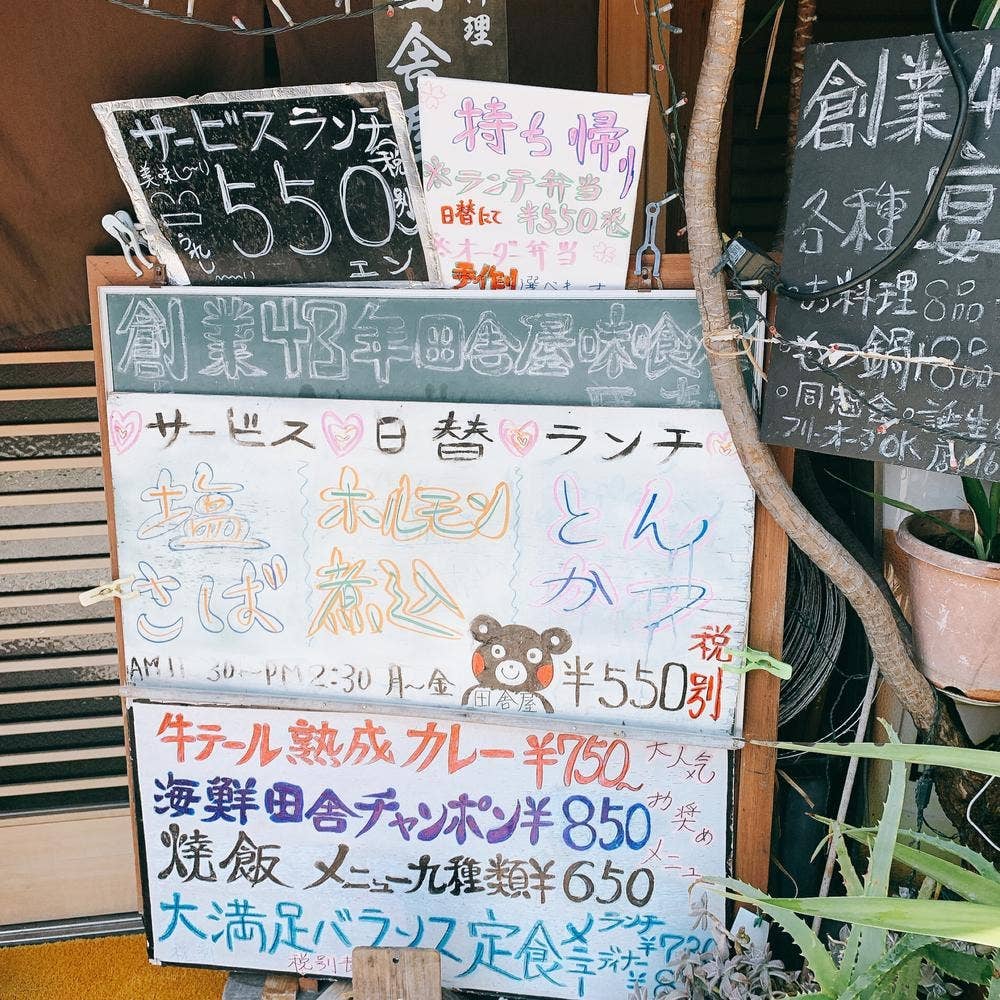 料理
田舎屋
サービスランチ
美味し〜い
550 税別
うれしい
エン
持ち帰り
ランチ弁当
日替にて ¥550
オーダー弁当
手作り 選べます
創業43年田舎屋味食
サービス 日替 ランチ
塩さば
ホルモン煮込
とんかつ
AM11:30〜PM2:30 月〜金
田舎屋
¥550 税別
牛テール熟成カレー ¥750 大人気
海鮮田舎チャンポン ¥850 お奨め
焼飯 メニュー九種類 ¥650 メニュー
大満足バランス定食 メニュー ランチ ¥
ディナー ¥
税別
創業4
各種 宴
お料理 8品
もつ鍋
同窓会 誕生
フリーオーダOK